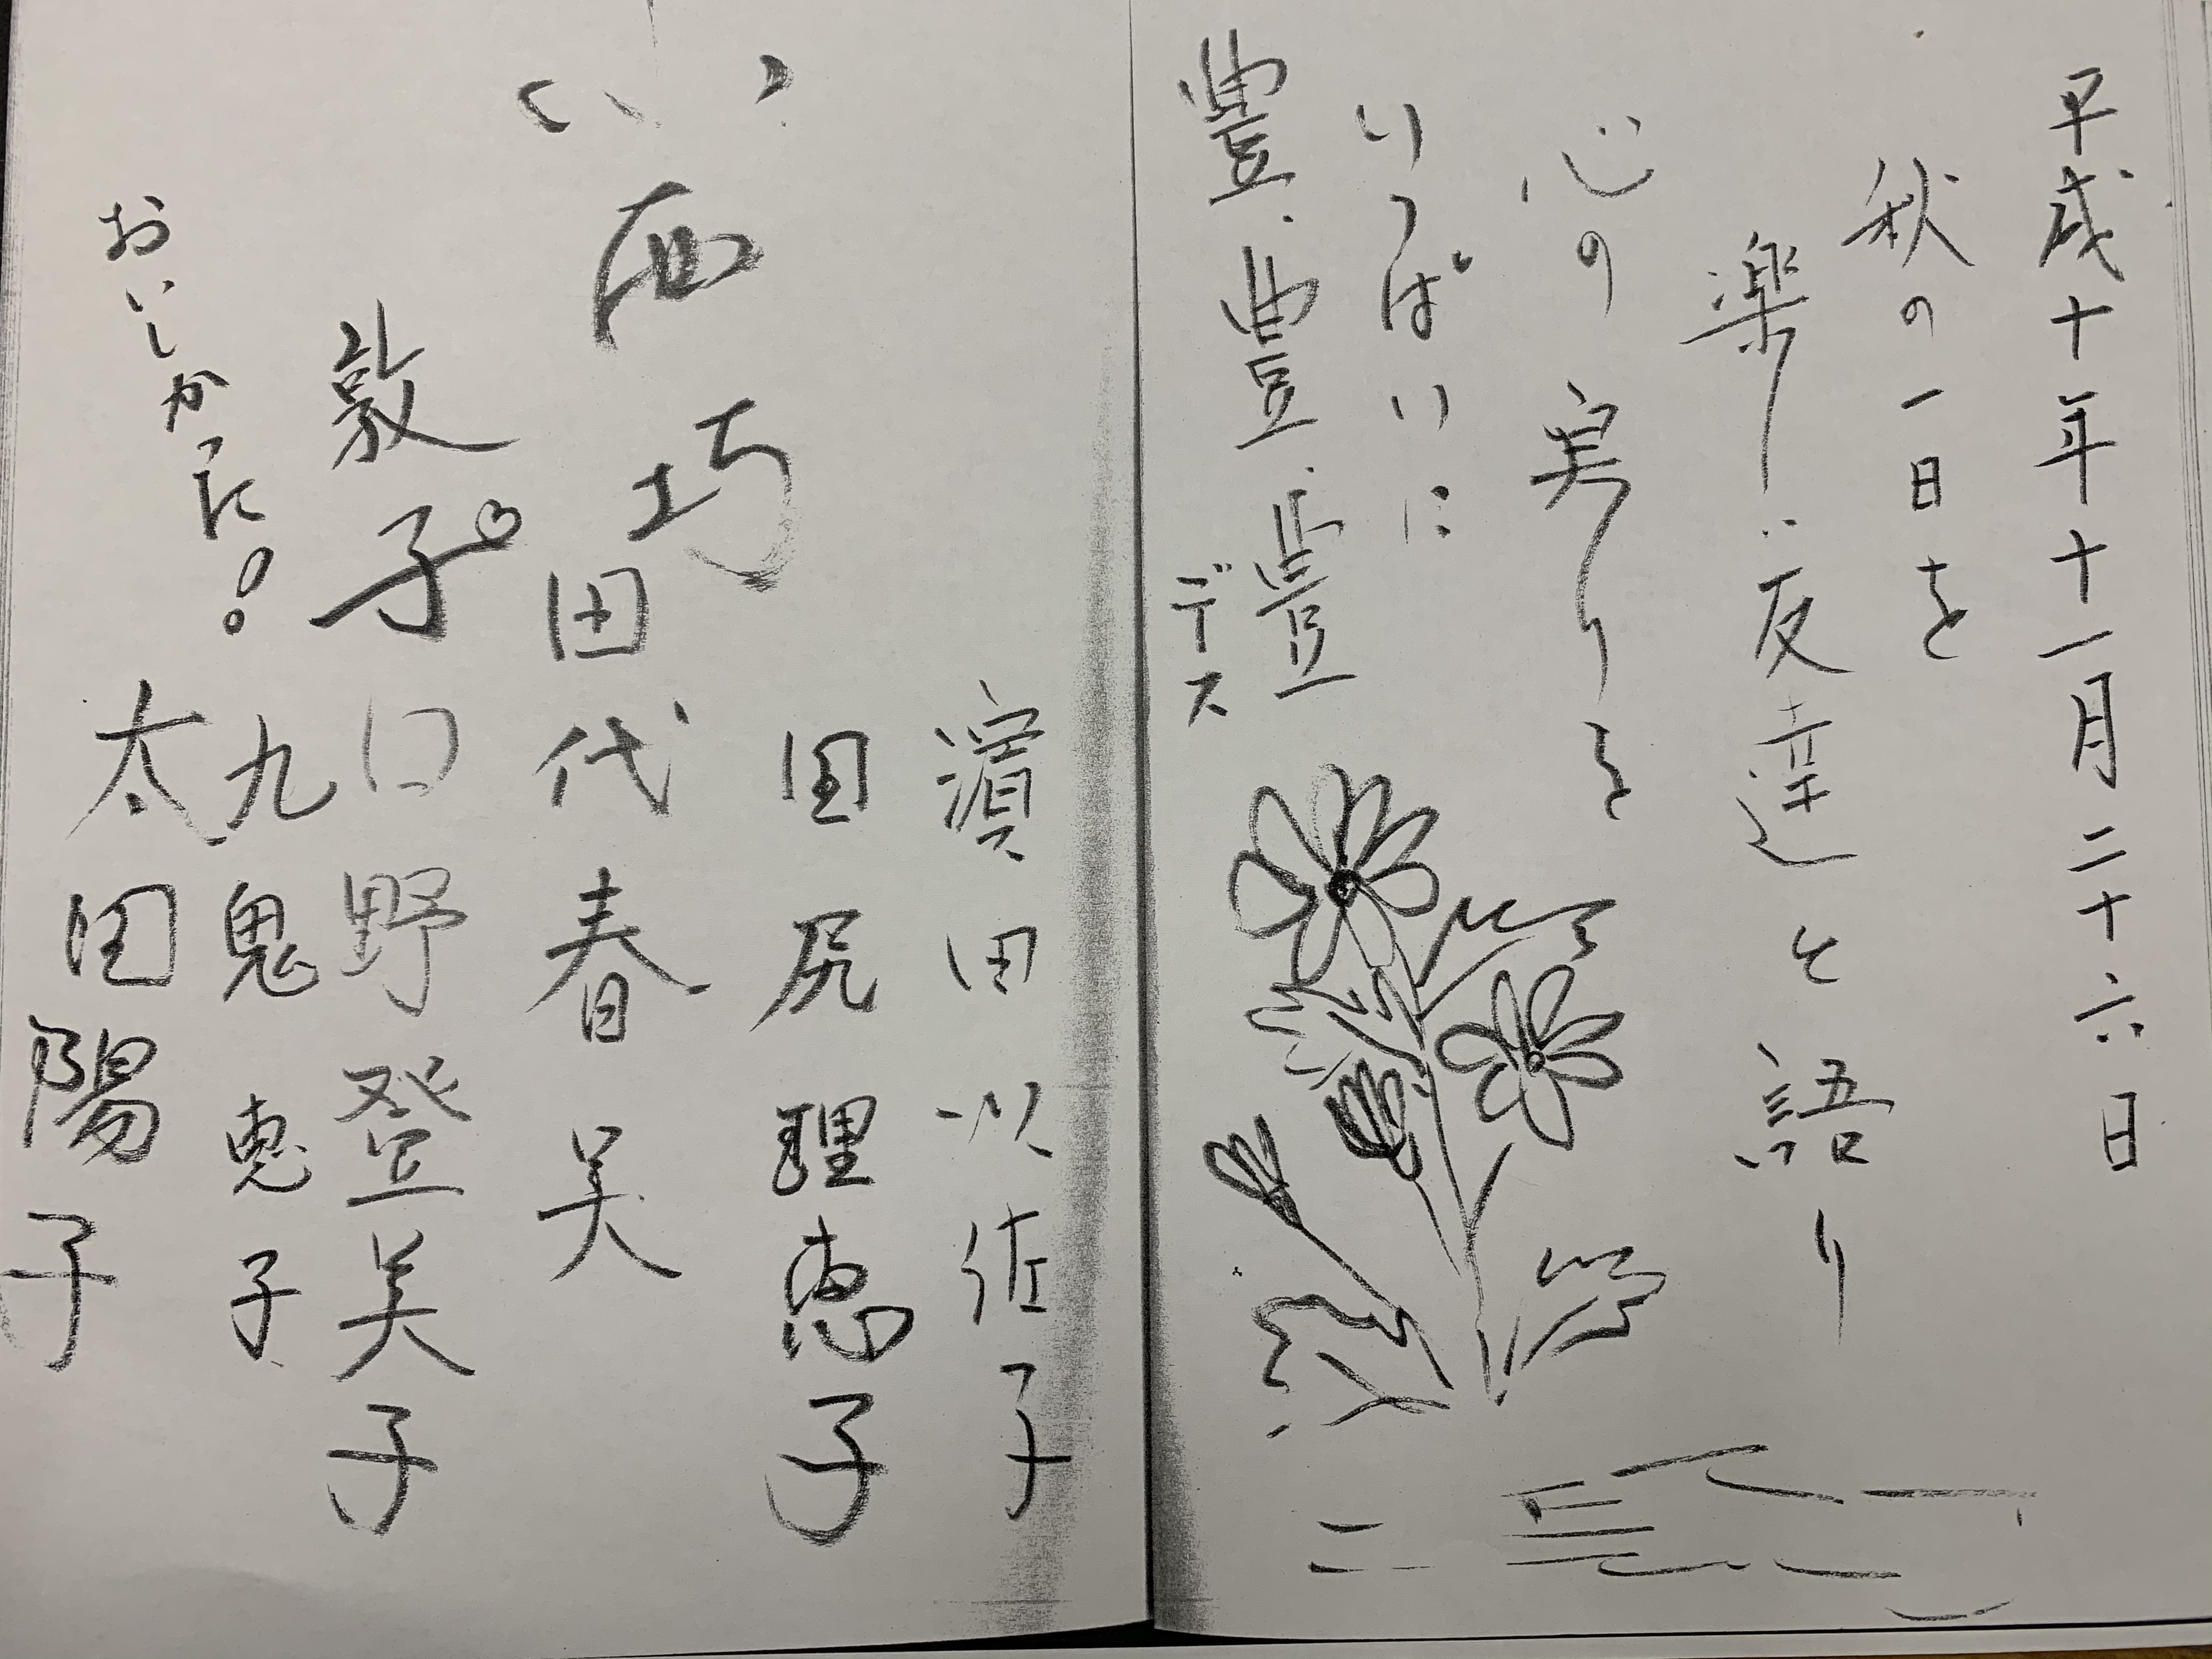 平成十年十一月二十六日
秋の一日を
楽しい友達と語り
心の実りを
いっぱいに
豊豊豊
デス
濱田以佐子
田尻理恵子
西巧
田代春美
敦子
口野登美子
おいしかった!
九鬼恵子
太田陽子